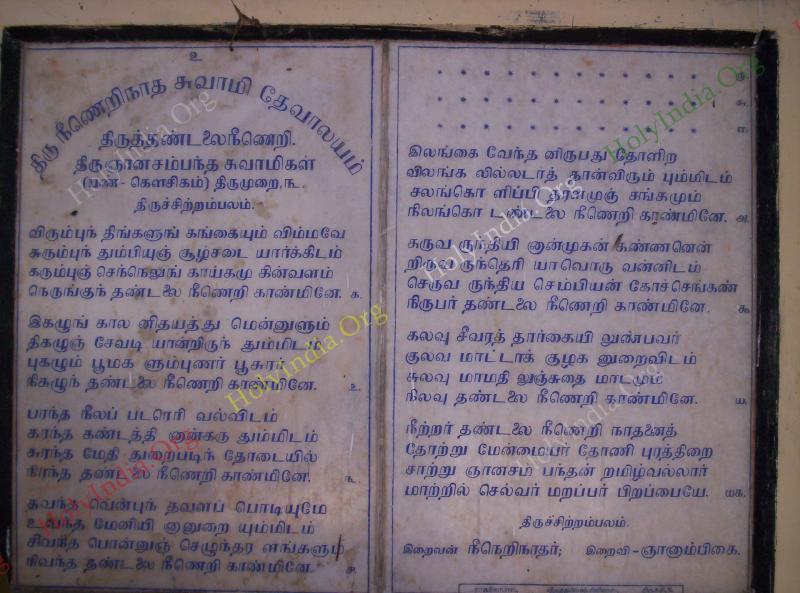 உ
திரு நீணெறிநாத சுவாமி தேவாலயம்
திருத்தண்டலைநீணெறி.
திருஞானசம்பந்த சுவாமிகள்
(பண் - கௌசிகம்) திருமுறை,௩.
திருச்சிற்றம்பலம்.
விரும்புந் திங்களுங் கங்கையும் விம்மவே
சுரும்புந் தும்பியுஞ் சூழ்சடை யார்க்கிடம்
கரும்புஞ் செந்நெலுங் காய்கமு கின்வளம்
நெருங்குந் தண்டலை நீணெறி காண்மினே. ௧.
இகழுங் கால னிதயத்து மென்னுளும்
திகழுஞ் சேவடி யான்றிருந் தும்மிடம்
புகழும் பூமக ளும்புணர் பூசுரர்
நிகழுந் தண்டலை நீணெறி காண்மினே. ௨.
பரந்த நீலப் படரெரி வல்விடம்
கரந்த கண்டத்தி னான்கரு தும்மிடம்
சுரந்த மேதி துறைபடிந் தோடையில்
நிரந்த தண்டலை நீணெறி காண்மினே. ௩.
தவந்த வென்புந் தவளப் பொடியுமே
உவந்த மேனியி னானுறை யும்மிடம்
சிவந்த பொன்னுஞ் செழுந்தர ளங்களும்
நிவந்த தண்டலை நீணெறி காண்மினே. ௪.
* * * * * * * * * * * * * ௫.
* * * * * * * * * * * * * ௬.
* * * * * * * * * * * * * ௭.
இலங்கை வேந்த னிருபது தோளிற
விலங்க லில்லடர்த் தான்விரும் பும்மிடம்
சலங்கொ ளிப்பி தரளமுஞ் சங்கமும்
நிலங்கொ டண்டலை நீணெறி காண்மினே. ௮.
கருவ ருந்தியி னான்முகன் கண்ணனென்
றிருவ ருந்தெரி யாவொரு வன்னிடம்
செருவ ருந்திய செம்பியன் கோச்செங்கண்
நிருபர் தண்டலை நீணெறி காண்மினே. ௯.
கலவு சீவரத் தார்கையி லுண்பவர்
குலவ மாட்டாக் குழக னுறைவிடம்
சுலவு மாமதி லுஞ்சுதை மாடமும்
நிலவு தண்டலை நீணெறி காண்மினே. ௰.
நீற்றர் தண்டலை நீணெறி நாதனைத்
தோற்று மேன்மையர் தோணி புரத்திறை
சாற்று ஞானசம் பந்தன் றமிழ்வல்லார்
மாற்றில் செல்வர் மறப்பர் பிறப்பையே. ௰௧.
திருச்சிற்றம்பலம்.
இறைவன் நீநெறிநாதர்; இறைவி - ஞானாம்பிகை.
HolyIndia.Org
HolyIndia.Org
HolyIndia.Org
HolyIndia.Org
HolyIndia.Org
HolyIndia.Org
HolyIndia.Org